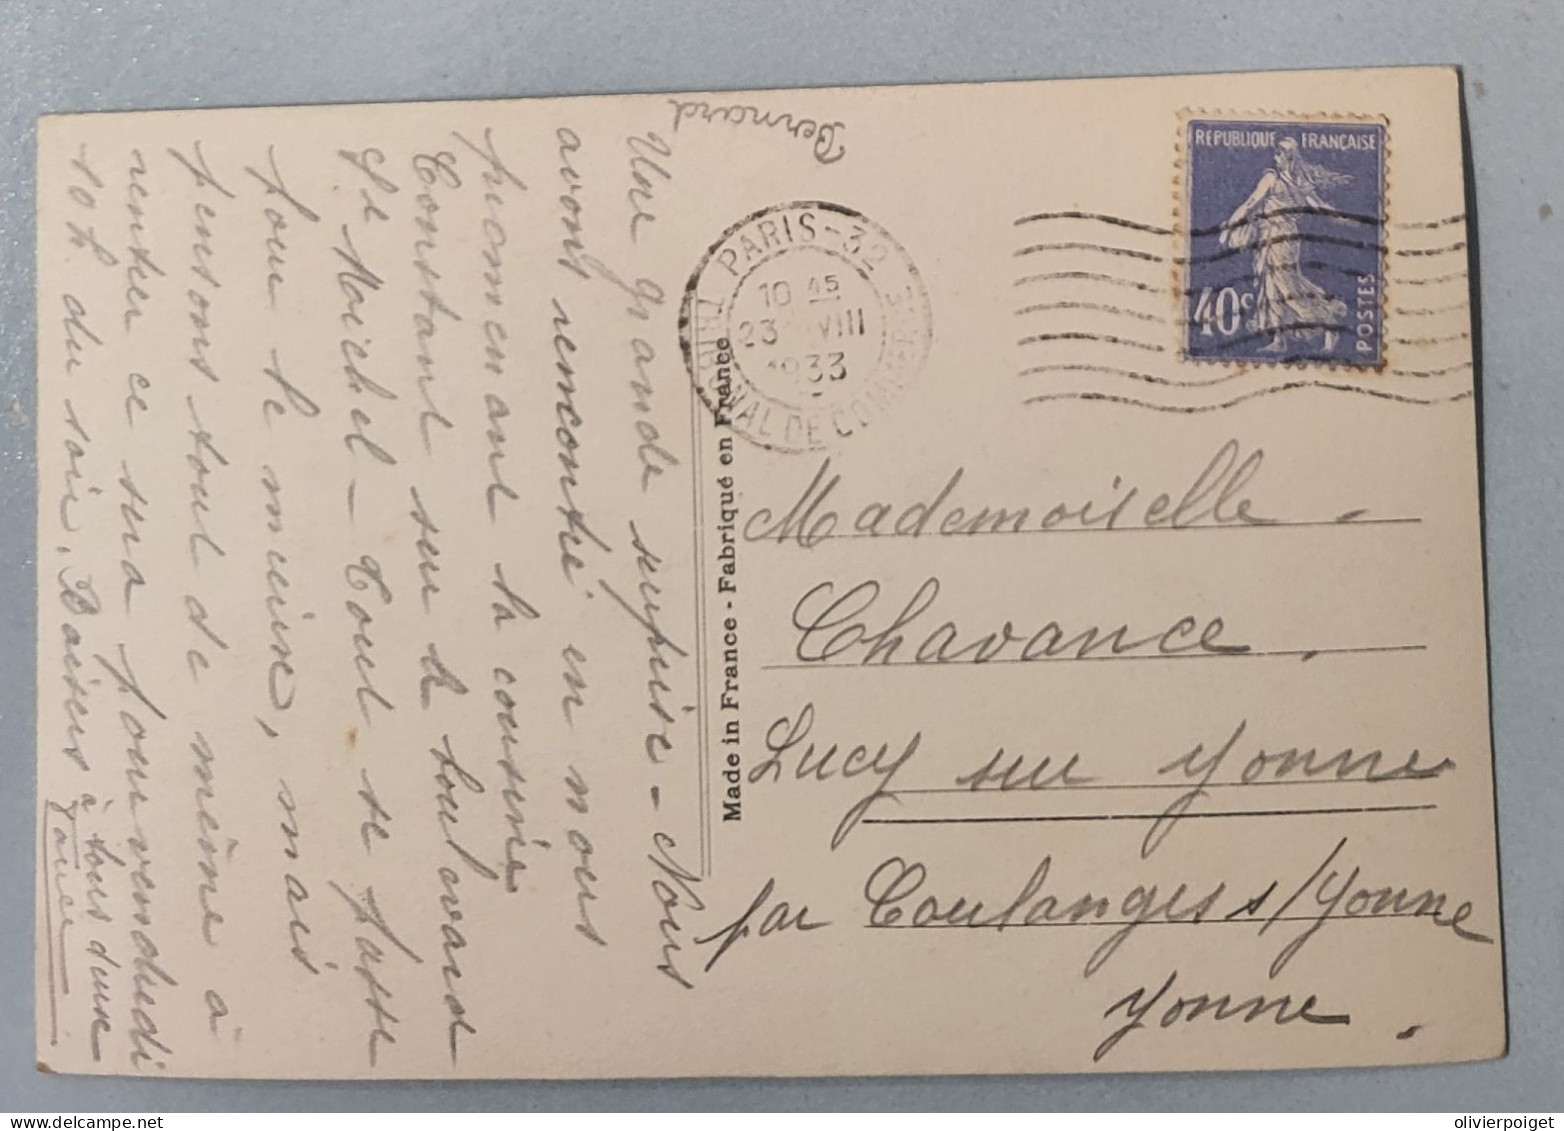 Bernard
Une grande surprise - Nous
avons rencontré en nous
promenant la cousine
Constant sur le boulevard
St Michel - Tout se passe
pour le mieux, mais
pensons tout de même à
rentrer ce sera pour vendredi
10 h. du soir. Baisers à tous deux
REPUBLIQUE FRANÇAISE
40c
POSTES
PARIS-32
10 45
23 VIII
1933
TRIBUNAL DE COMMERCE
Made in France - Fabriqué en France
Mademoiselle
Chavance,
Lucy sur Yonne
par Coulanges s/Yonne
Yonne.
olivierpoiget